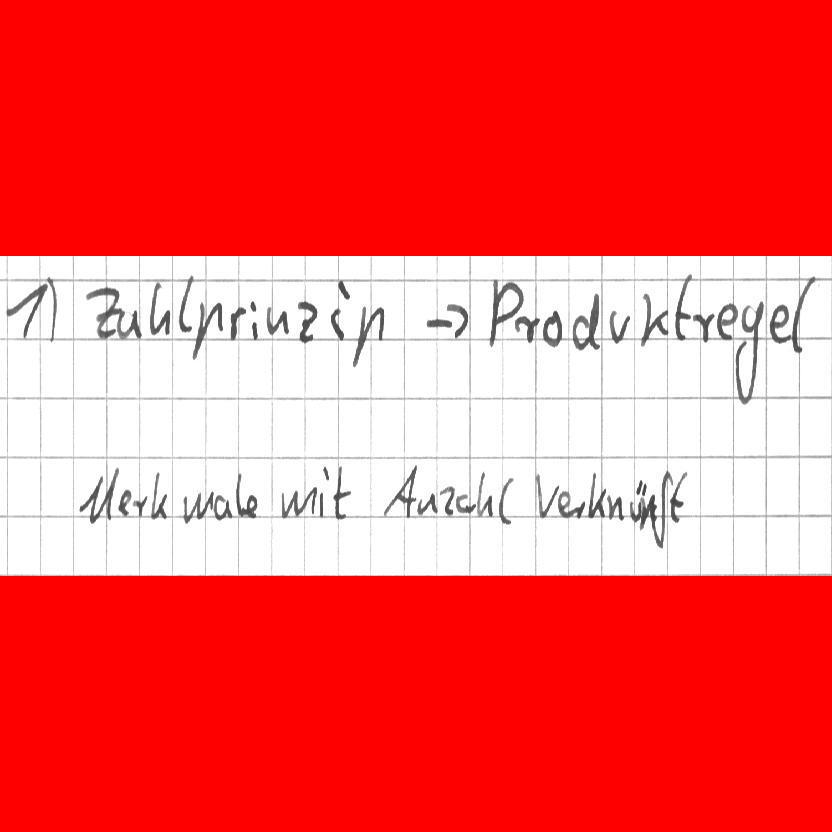 1) Zahlprinzip → Produktregel
Merkmale mit Anzahl Verknüpft